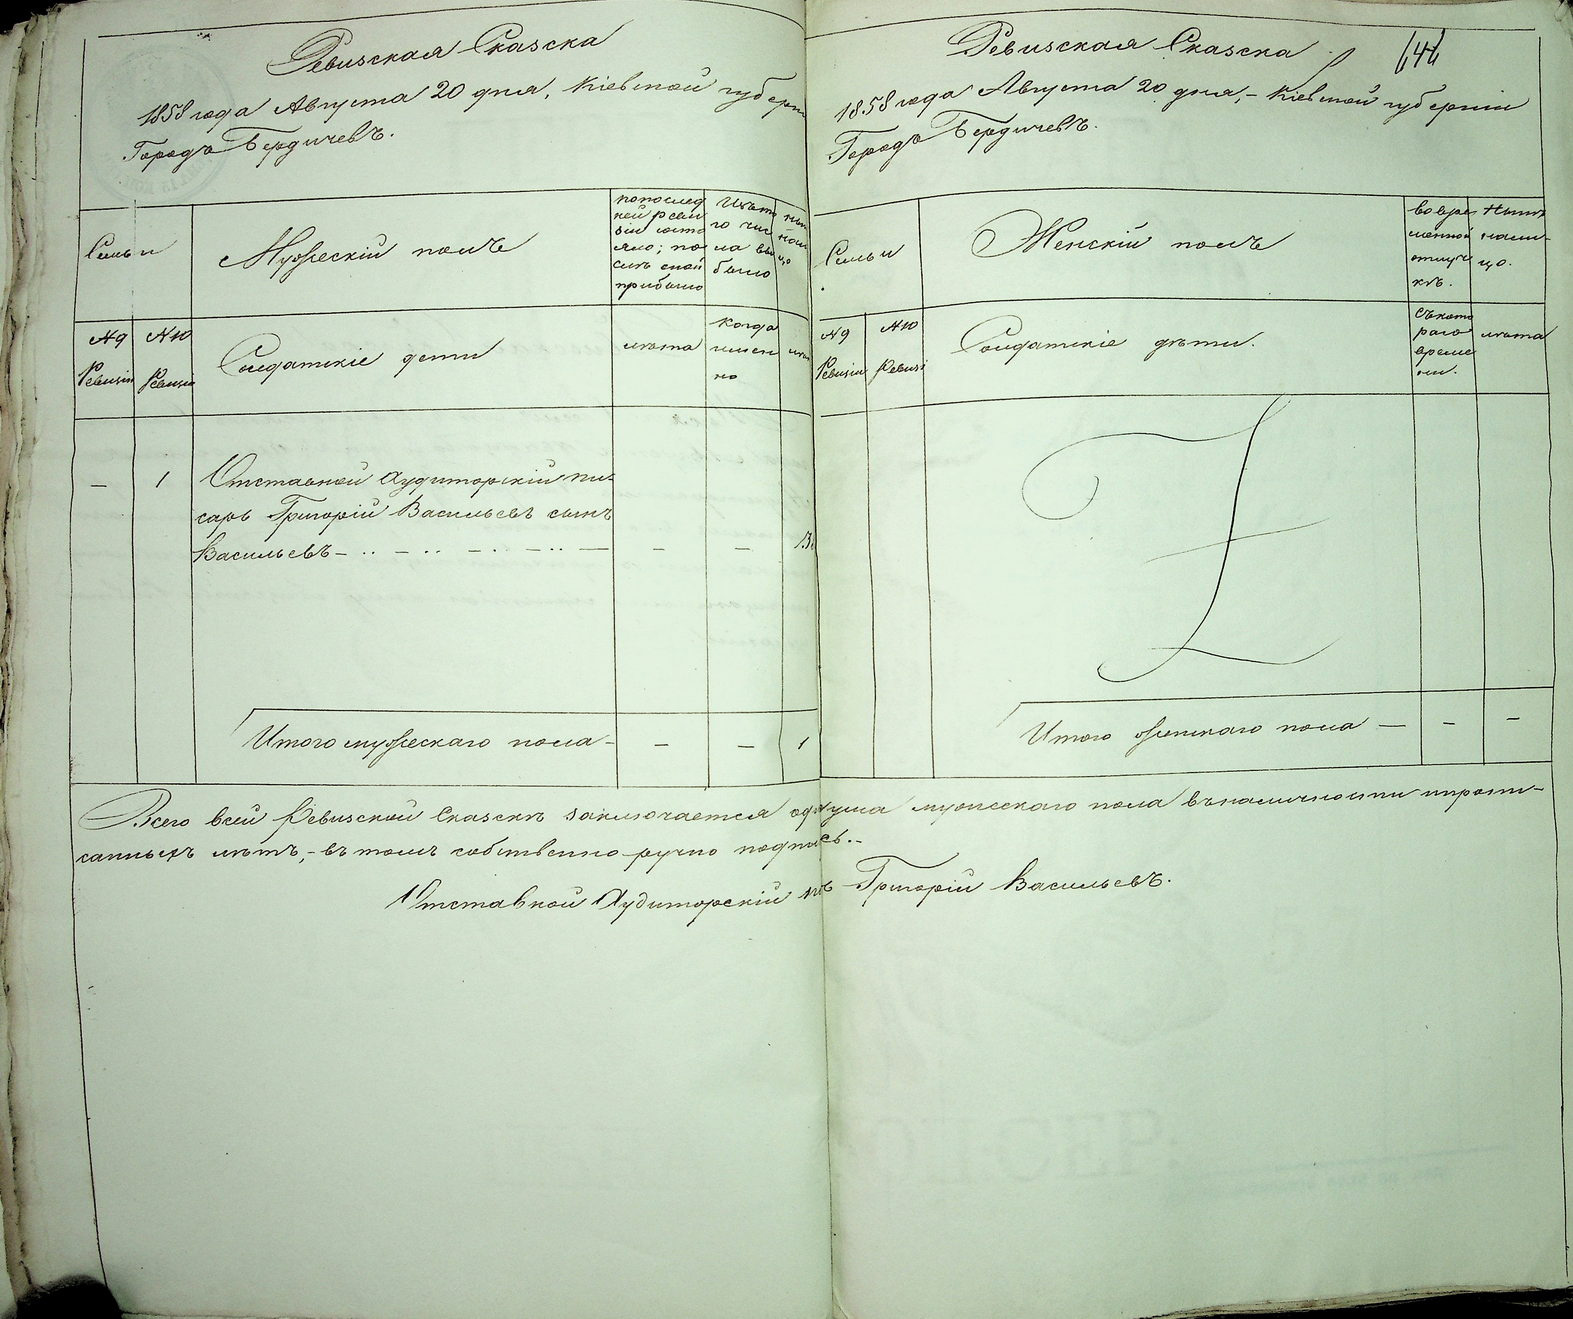 Ревизская Сказка
1858 года Августа 20 дня, Кіевской губерн
Городъ Бердичевъ.
Семьи
Мужескій полъ
по послед
ней реви
зіи состо
яло; по
слѣ оной
прибыло
Изъто
го чис
ла вы
было
ны
№ 9
Ревизіи
№ 10
Ревизіи
Солдатскіе дети
лѣта
когда
имен
но
— 1 Отставной Аудиторскій пи-
сарь Григорій Васильевъ сынъ
Васильевъ — — —
Итого мужескаго пола — — — 1
Ревизская Сказка
141
1858 года Августа 20 дня, — Кіевской губерніи
Городъ Бердичевъ.
Семьи
Женскій полъ
во вре
менной
отлуч
кѣ.
Нынѣ
нали-
цо.
№ 9
Ревизіи
№ 10
Ревизі
Солдатскіе дѣти.
съ кото
раго
време
ни.
лѣта
Итого женскаго пола — — —
Всего всей Ревизской Сказкѣ заключается одна душа мужескаго пола въ наличности и пропи-
санныхъ лѣтъ, — въ томъ собственно ручно подпись. —
Отставной Аудиторскій Григорій Васильевъ.